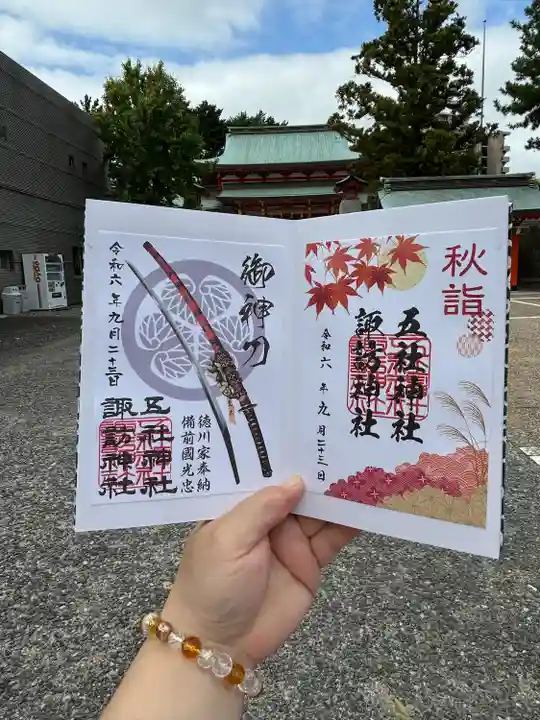 秋詣
五社神社
諏訪神社
令和六年九月二十三日
御神刀
徳川家奉納
備前國光忠
五社神社
諏訪神社
令和六年九月二十三日